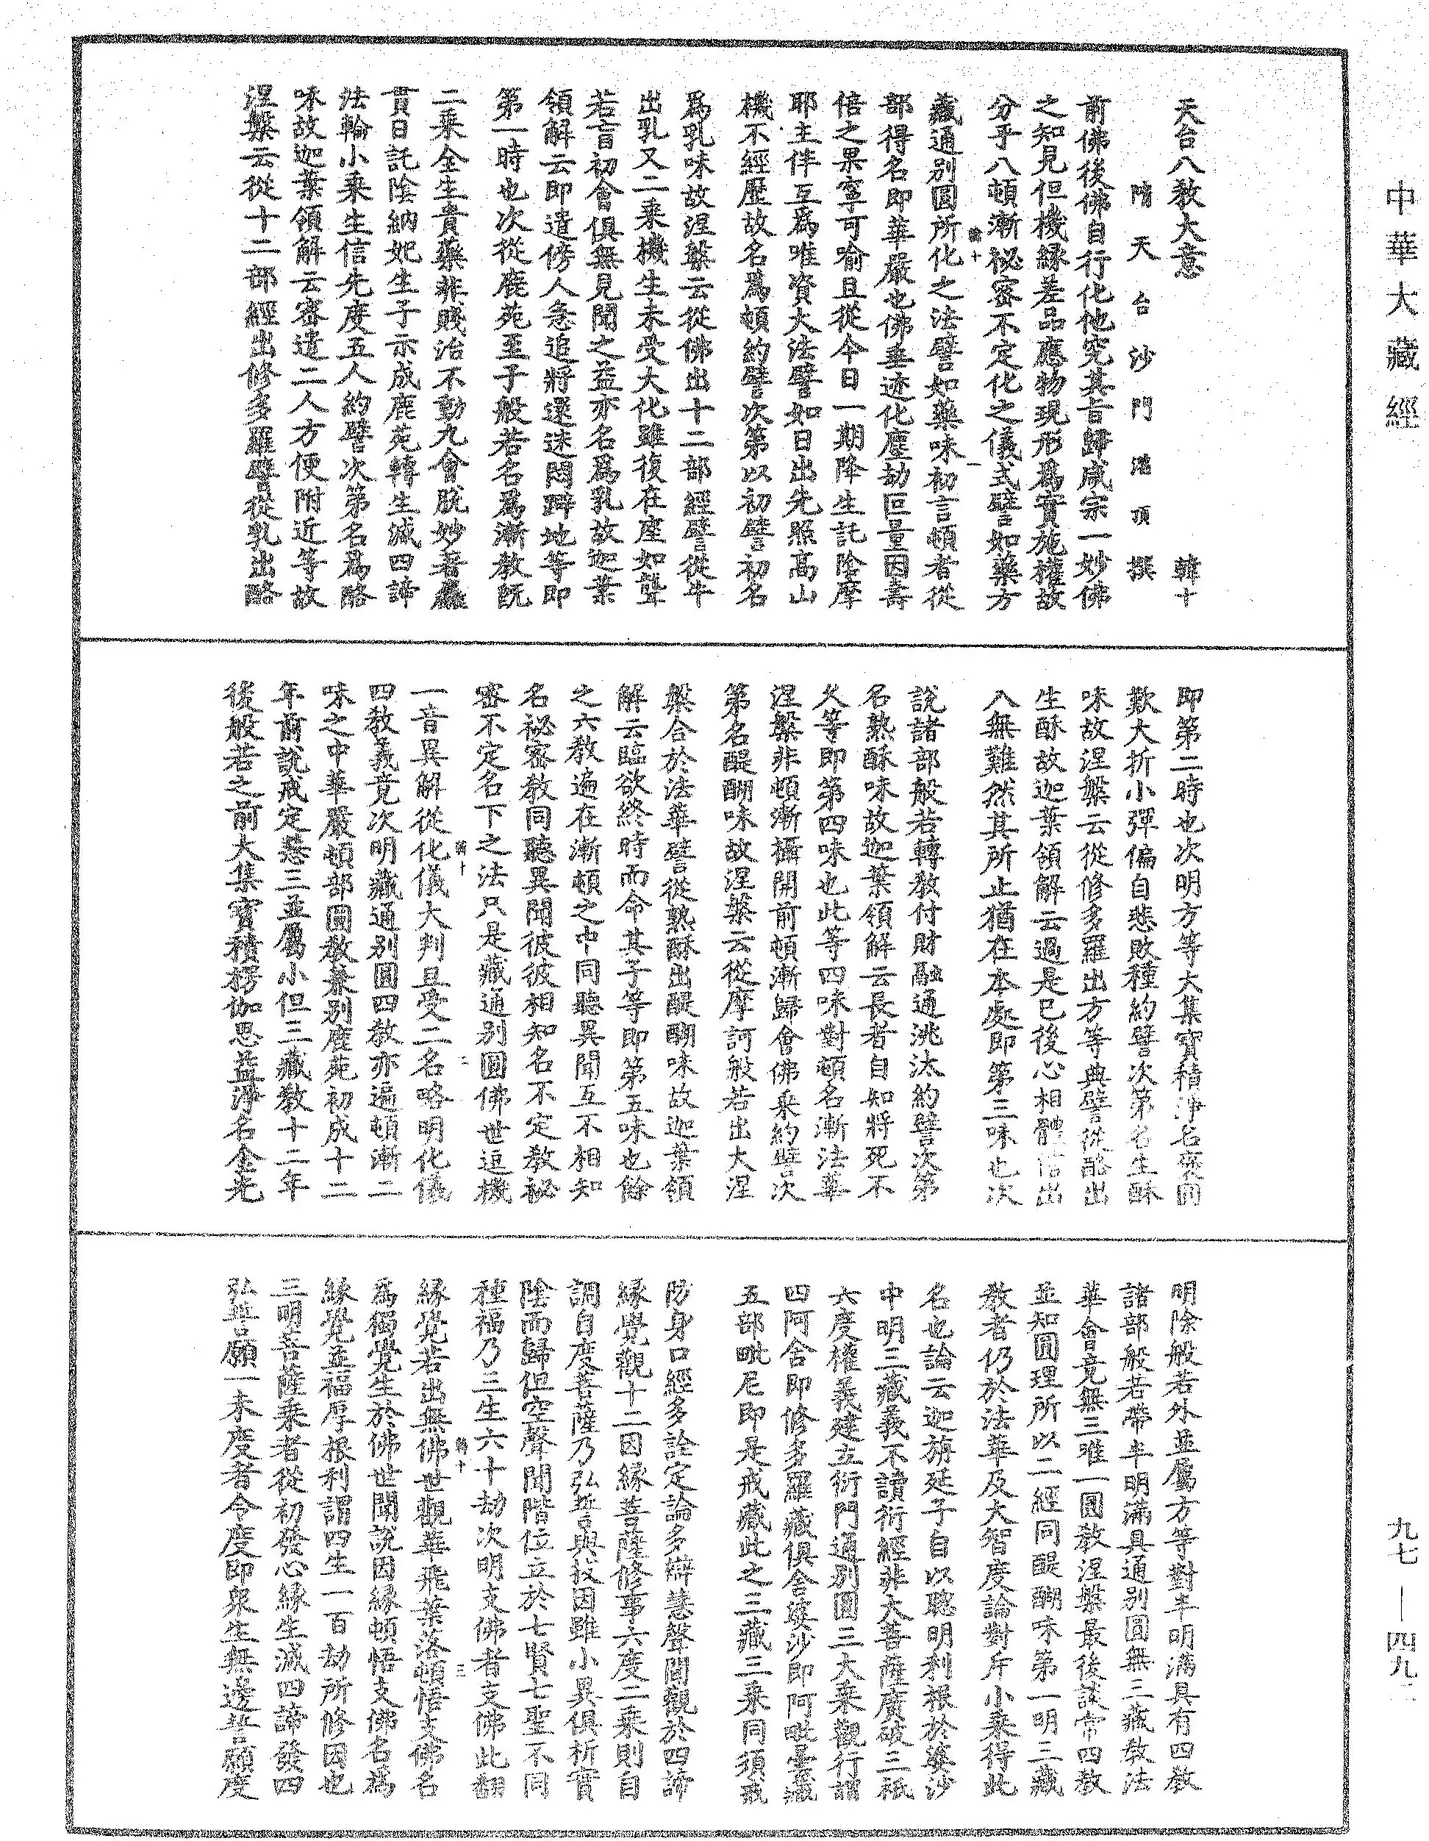 中華大藏經
天台八教大意
韓十
隋天台沙門灌頂撰
前佛後佛自行化他究其旨歸咸宗一妙佛
之知見但機緣差品應物現形為實施權故
分乎八頓漸祕密不定化之儀式譬如藥方
藏通別圓所化之法譬如藥味初言頓者從
部得名即華嚴也佛垂迹化塵劫叵量因壽
倍之果寧可喻且從今日一期降生託陰摩
耶主伴互為唯資大法譬如日出先照高山
機不經歷故名為頓約譬次第以初譬初名
為乳味故涅槃云從佛出十二部經譬從牛
出乳又二乘機生未受大化雖復在座如聾
若盲初會俱無見聞之益亦名為乳故迦葉
領解云即遣傍人急追將還迷悶躃地等即
第一時也次從鹿苑至于般若名為漸教既
二乘全生貴藥非賤治不動九會脫妙著麤
貫日託陰納妃生子示成鹿苑轉生滅四諦
法輪小乘生信先度五人約譬次第名為酪
味故迦葉領解云密遣二人方便附近等故
涅槃云從十二部經出修多羅譬從乳出酪
即第二時也次明方等大集寶積淨名褒圓
歎大折小彈偏自悲敗種約譬次第名生酥
味故涅槃云從修多羅出方等典譬從酪出
生酥故迦葉領解云過是已後心相體信出
入無難然其所止猶在本處即第三味也次
說諸部般若轉教付財融通洮汰約譬次第
名熟酥味故迦葉領解云長者自知將死不
久等即第四味也此等四味對頓名漸法華
涅槃非頓漸攝開前頓漸歸會佛乘約譬次
第名醍醐味故涅槃云從摩訶般若出大涅
槃合於法華譬從熟酥出醍醐味故迦葉領
解云臨欲終時而命其子等即第五味也餘
之六教遍在漸頓之中同聽異聞互不相知
名祕密教同聽異聞彼彼相知名不定教祕
密不定名下之法只是藏通別圓佛世逗機
一音異解從化儀大判且受二名略明化儀
四教義竟次明藏通別圓四教亦遍頓漸二
味之中華嚴頓部圓教兼別鹿苑初成十二
年前說戒定慧三並屬小但三藏教十二年
後般若之前大集寶積楞伽思益淨名金光
明除般若外並屬方等對半明滿具有四教
諸部般若帶半明滿具通別圓無三藏教法
華會竟無三唯一圓教涅槃最後談常四教
並知圓理所以二經同醍醐味第一明三藏
教者仍於法華及大智度論對斥小乘得此
名也論云迦旃延子自以聰明利根於婆沙
中明三藏義不讀衍經非大菩薩廣破三祇
六度權義建立衍門通別圓三大乘觀行謂
四阿含即修多羅藏俱舍婆沙即阿毗曇藏
五部毗尼即是戒藏此之三藏三乘同須戒
防身口經多詮定論多辯慧聲聞觀於四諦
緣覺觀十二因緣菩薩修事六度二乘則自
調自度菩薩乃弘誓與拔因雖小異俱析實
陰而歸但空聲聞階位立於七賢七聖不同
種福乃三生六十劫次明支佛者支佛此翻
緣覺若出無佛世觀華飛葉落頓悟支佛名
為獨覺生於佛世聞說因緣頓悟支佛名為
緣覺並福厚根利謂四生一百劫所修因也
三明菩薩乘者從初發心緣生滅四諦發四
弘誓願一未度者令度即眾生無邊誓願度
九七—四九二